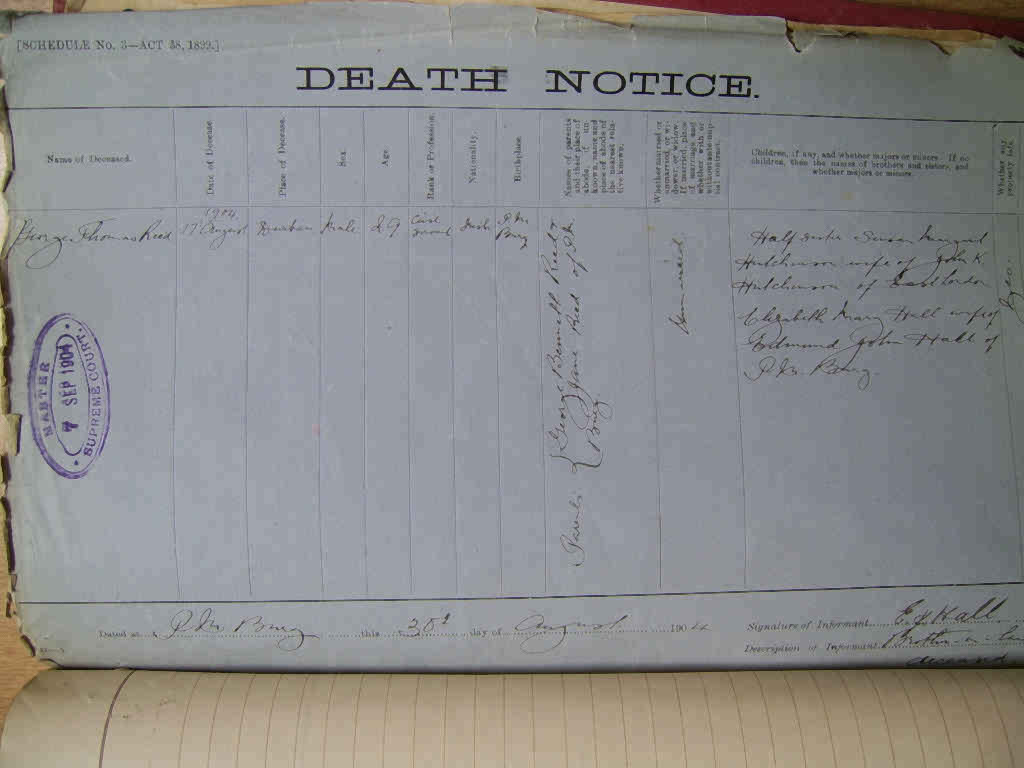 [SCHEDULE No. 3—ACT 38, 1899.]
DEATH NOTICE.
Name of Deceased.
Date of Decease.
Place of Decease.
Sex.
Age.
Rank or Profession.
Nationality.
Birthplace.
Names of parents
and their place of
abode, if un-
known, names and
place of abode of
the nearest rela-
tive known.
Whether married or
unmarried, or wi-
dower, or widow.
If married, place
of marriage and
whether with or
without ante-nup-
tial contract.
Children, if any, and whether majors or minors. If no
children, then the names of brothers and sisters, and
whether majors or minors.
Whether any
property left.
George Thomas Reed
1904
17 August
Durban
Male
29
P.M.
Burg
Parents { George Reed &
Jane Reed of P.M.
Burg
Unmarried
Half sister Susan Margaret
Hutchinson wife of John K.
Hutchinson of East London
Elizabeth Mary Hall wife of
Edmund John Hall of
P.M. Burg.
Yes.
MASTER
7 SEP 1904
SUPREME COURT.
Dated at P.M. Burg this 30th day of August 1904
Signature of Informant E J Hall
Description of Informant Brother in law
deceased